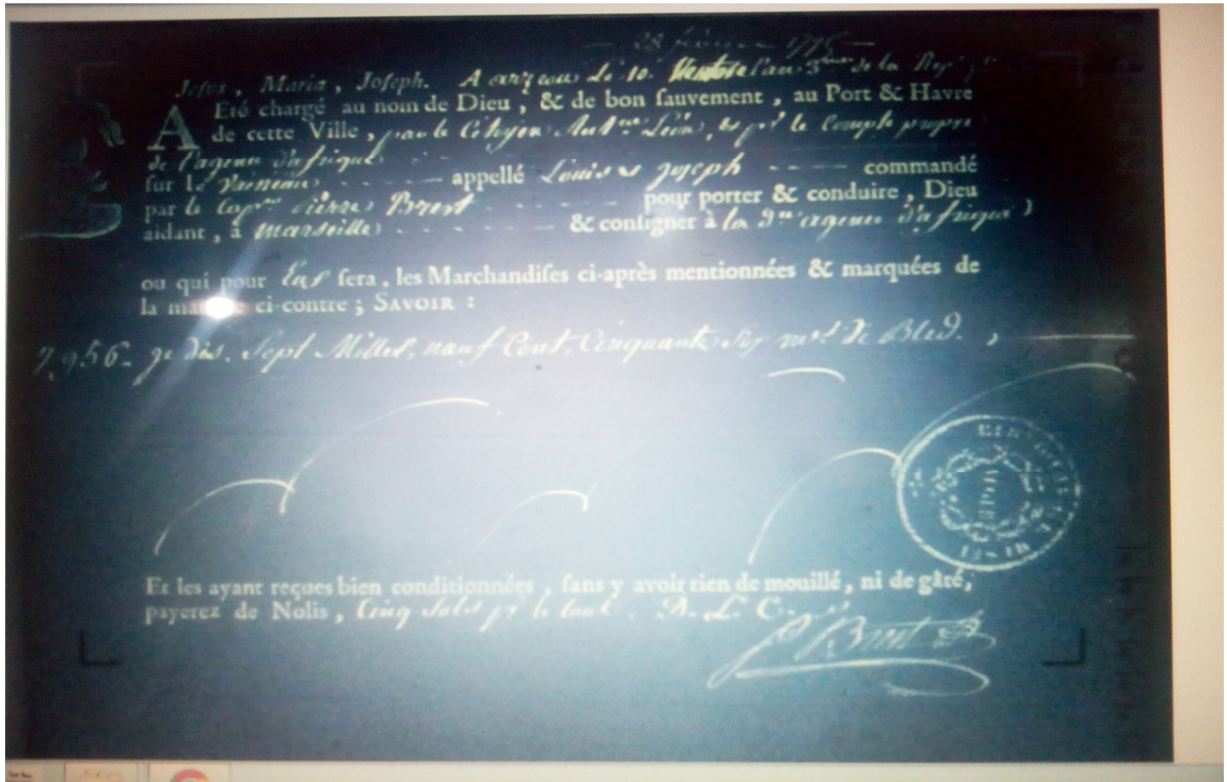 28 février 1795
Jesus, Maria, Joseph. A arzeau Le 10. Ventose l'an 3me de la Rep
A Eté chargé au nom de Dieu, & de bon ſauvement, au Port & Havre
de cette Ville, par le Citoyen Antne Léon, et pr le Compte propre
de l'agence d'afrique
ſur le Vaisseau appellé Louis joseph commandé
par le Capne pierre Brest pour porter & conduire, Dieu
aidant, à marseille & conſigner à la agence d'afrique
ou qui pour Eux ſera, les Marchandiſes ci-après mentionnées & marquées de
la ci-contre ; SAVOIR :
7,956. je dis. Sept Milles, neuf Cent, Cinquante Six de Bled.,
Et les ayant reçues bien conditionnées, ſans y avoir rien de mouillé, ni de gâté,
payerez de Nolis, Cinq Sols pr le tout. D. L. C.